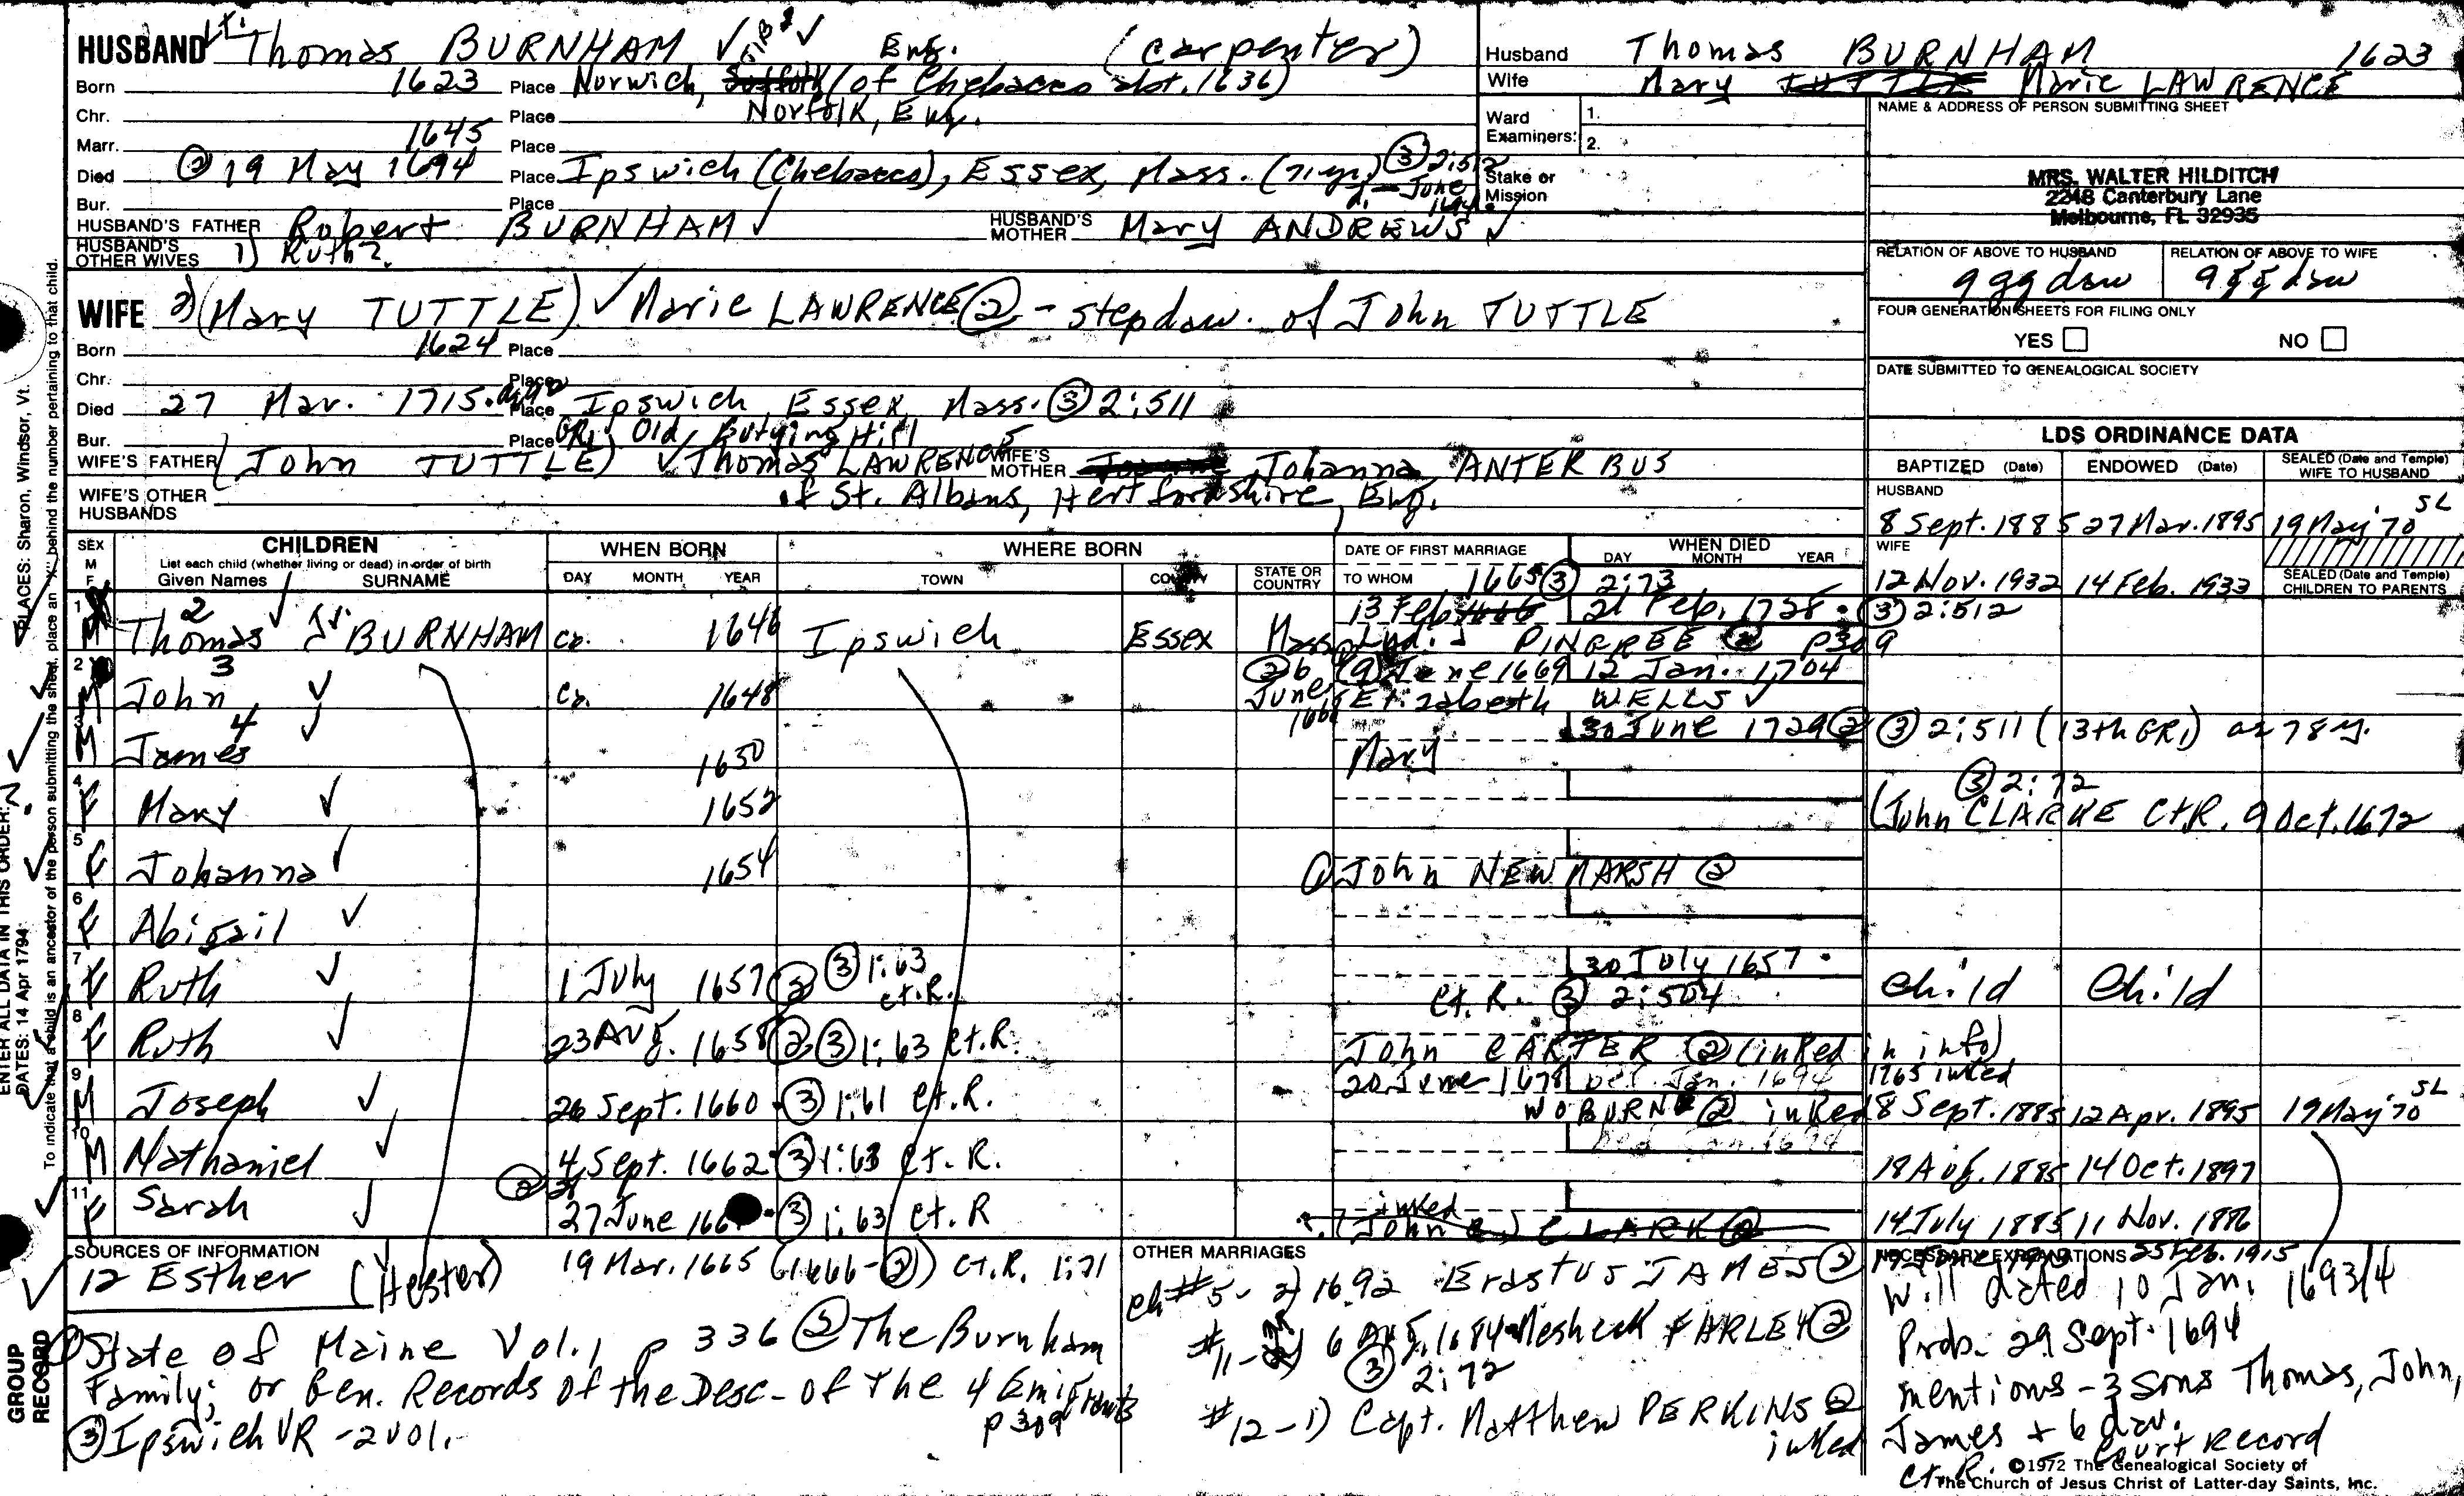 HUSBAND Lt. Thomas BURNHAM Eng. (carpenter)
Born 1623 Place Norwich, Suffolk (of Chebacco abt. 1636)
Chr. Place Norfolk, Eng.
Marr. 1645 Place
Died ② 19 May 1694 Place Ipswich (Chebacco), Essex, Mass. (71 yr.) ③ 2:512
d. - June 1694.
Bur. Place
HUSBAND'S FATHER Robert BURNHAM HUSBAND'S MOTHER Mary ANDREWS
HUSBAND'S OTHER WIVES 1) Ruth?
WIFE 2) (Mary TUTTLE) Marie LAWRENCE ② - stepdau. of John TUTTLE
Born 1624 Place
Chr. Place
Died 27 Mar. 1715. Place Ipswich, Essex, Mass. ③ 2:511
Bur. Place GR1 Old Burying Hill
WIFE'S FATHER (John TUTTLE) Thomas LAWRENCE WIFE'S MOTHER Johanna ANTERBUS
WIFE'S OTHER HUSBANDS of St. Albans, Hertfordshire, Eng.
Husband Thomas BURNHAM 1623
Wife Mary TUTTLE Marie LAWRENCE
Ward Examiners: 1.
2.
Stake or Mission
NAME & ADDRESS OF PERSON SUBMITTING SHEET
MRS. WALTER HILDITCH
2248 Canterbury Lane
Melbourne, FL 32935
RELATION OF ABOVE TO HUSBAND RELATION OF ABOVE TO WIFE
ggg dau ggg dau
FOUR GENERATION SHEETS FOR FILING ONLY
YES NO
DATE SUBMITTED TO GENEALOGICAL SOCIETY
LDS ORDINANCE DATA
BAPTIZED (Date) ENDOWED (Date) SEALED (Date and Temple) WIFE TO HUSBAND
HUSBAND
8 Sept. 1885 27 Mar. 1895 19 May '70 SL
WIFE
12 Nov. 1932 14 Feb. 1933 SEALED (Date and Temple) CHILDREN TO PARENTS
SEX M F
CHILDREN
List each child (whether living or dead) in order of birth
Given Names SURNAME
WHEN BORN
DAY MONTH YEAR
WHERE BORN
TOWN COUNTY STATE OR COUNTRY
DATE OF FIRST MARRIAGE
TO WHOM
WHEN DIED
DAY MONTH YEAR
1665 ③ 2:73
1 M Thomas Jr. BURNHAM ca. 1646 Ipswich Essex Mass. 13 Feb 1666 21 Feb. 1728. ③ 2:512
Lydia PINGREE ② p309
2 M John ca. 1648 ② 6 June 1668 ① 9 June 1669 12 Jan. 1704
Elizabeth WELLS
3 M James 1650 30 June 1729 ② ③ 2:511 (13th GR1) ae 78 y.
Mary
4 F Mary 1652 ③ 2:72
(John CLARKE Ct.R. 9 Oct. 1672
5 F Johanna 1654 ① John NEWMARSH ②
6 F Abigail
7 F Ruth 1 July 1657 ② ③ 1:63 Ct.R. 30 July 1657.
Ct.R. ③ 2:504 Child Child
8 F Ruth 23 Aug. 1658 ② ③ 1:63 Ct.R.
John CARTER ② (inked in info)
20 June 1678 bef. Jan. 1694 1765 inked
9 M Joseph 26 Sept. 1660. ③ 1:61 Ct.R. WOBURN ② inked 8 Sept. 1885 12 Apr. 1895 19 May '70 SL
bef Jan. 1694
10 M Nathaniel 4 Sept. 1662 ③ 1:63 Ct.R. 18 Aug. 1885 14 Oct. 1897
11 F Sarah 27 June ③ 1:63 Ct.R inked
(John CLARK ② 14 July 1885 11 Nov. 1886
SOURCES OF INFORMATION
12 Esther (Hester) 19 Mar. 1665 (1666-②) Ct.R. 1:71
① State of Maine Vol. 1 p 336 ② The Burnham
Family; or Gen. Records of the Desc. of The 4 Emigrants
p 309
③ Ipswich VR - 2 vol.
OTHER MARRIAGES
ch #5 - 2) 1692 Erastus JAMES ②
#11 - 6 Aug. 1684 Mesheck FARLEY ②
③ 2:72
#12 - 1) Capt. Matthew PERKINS ②
inked
NECESSARY EXPLANATIONS 25 Feb. 1915
Will dated 10 Jan. 1693/4
Prob. 29 Sept. 1694
mentions - 3 sons Thomas, John,
James + 6 dau.
Ct.R. Court Record
©1972 The Genealogical Society of
The Church of Jesus Christ of Latter-day Saints, Inc.
ENTER ALL DATA IN THIS ORDER:
DATES: 14 Apr 1794
PLACES: Sharon, Windsor, Vt.
To indicate that a child is an ancestor of the person submitting the sheet, place an "X" behind the number pertaining to that child.
GROUP RECORD